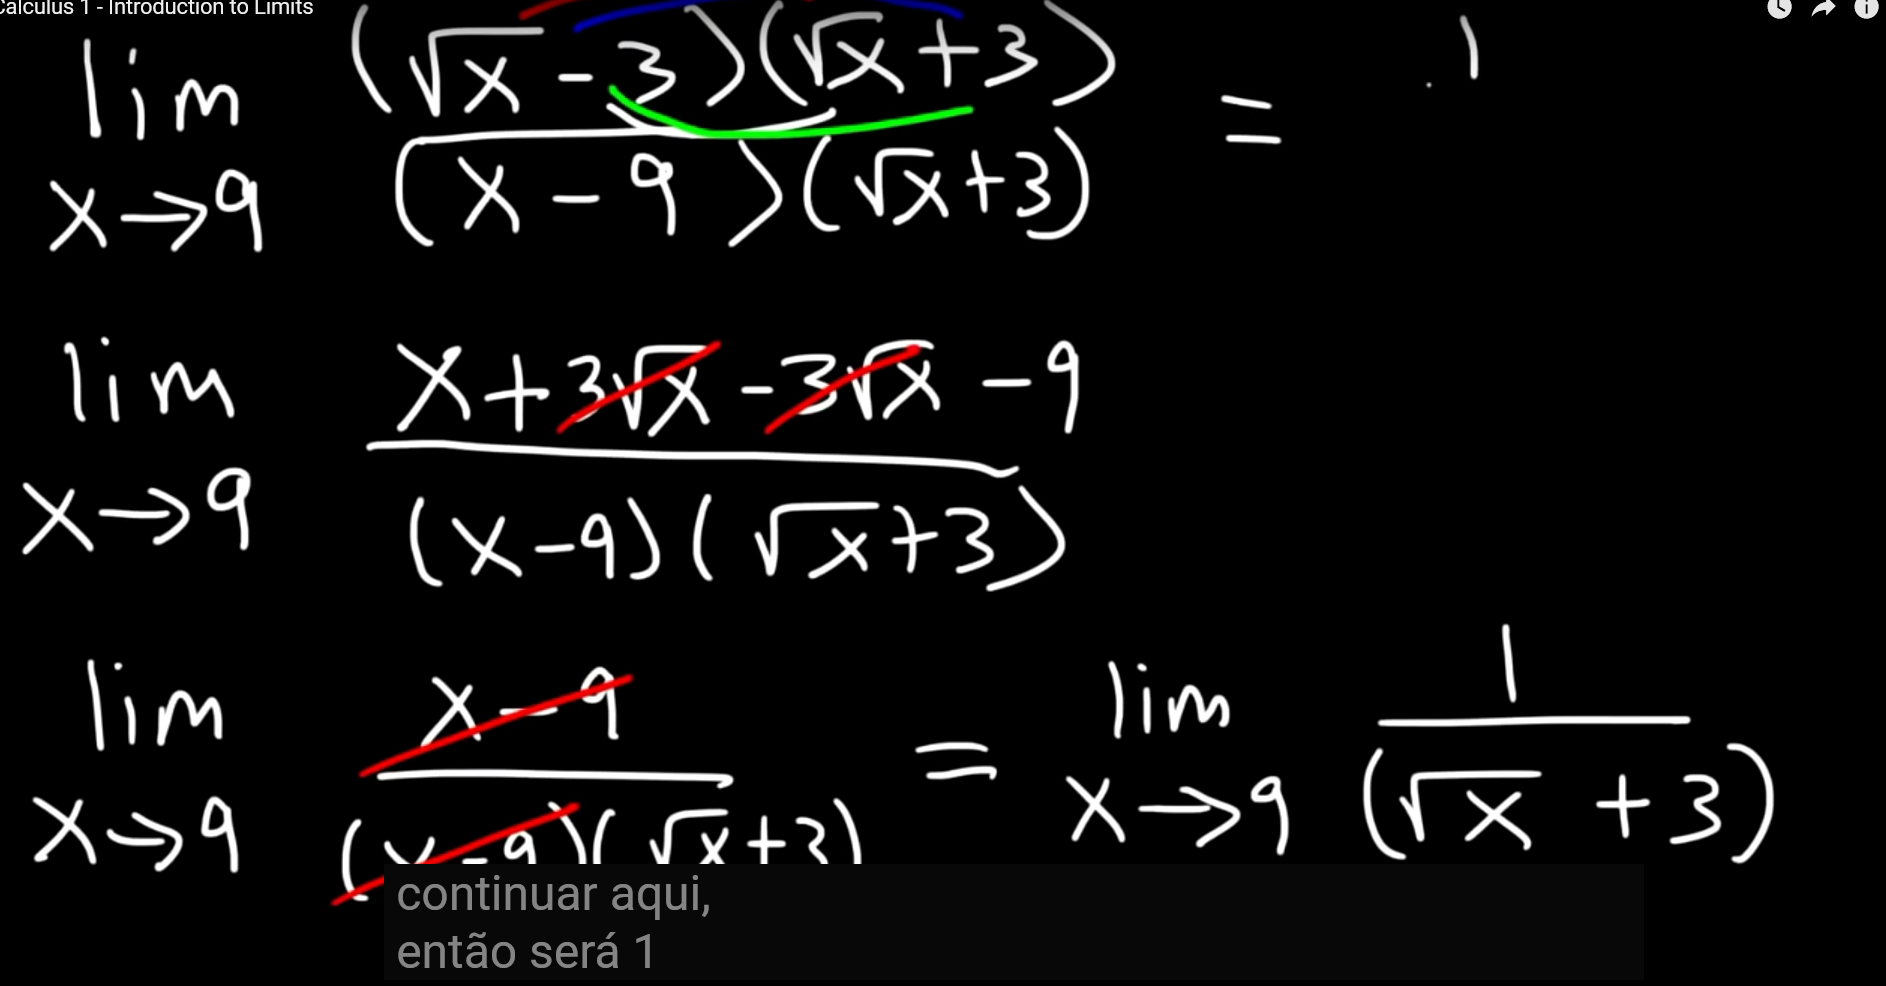 Calculus 1 - Introduction to Limits
lim x→9 (√x - 3)(√x + 3) / (x - 9)(√x + 3) = 1
lim x→9 x + 3√x - 3√x - 9 / (x - 9)(√x + 3)
lim x→9 x - 9 / (x - 9)(√x + 3) = lim x→9 1 / (√x + 3)
continuar aqui,
então será 1